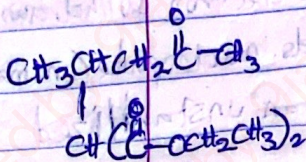 O
CH3CHCH2C-CH3
CH(C-OCH2CH3)2